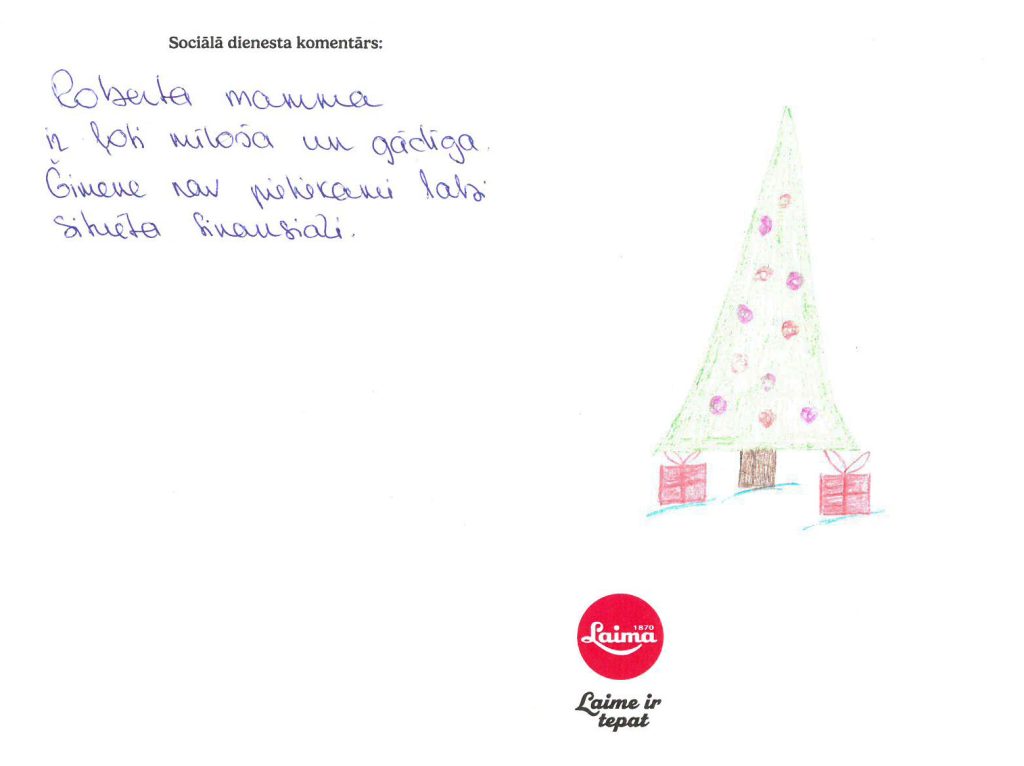 Sociālā dienesta komentārs:
Roberta mamma
ir ļoti mīloša un gādīga.
Ģimene nav pietiekami labi
situēta finansiāli.
1870
Laima
Laime ir
tepat